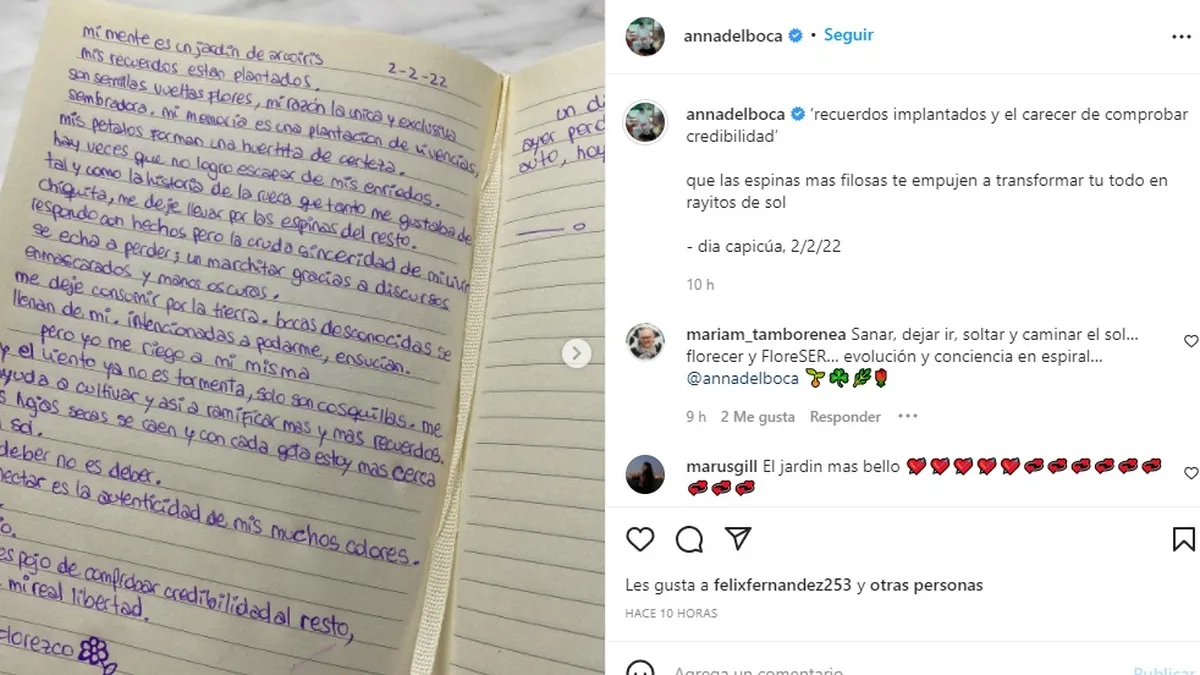 mi mente es un jardín de arcoiris
2-2-22
mis recuerdos están plantados.
son semillas vueltas flores, mi razón la unica y exclusiva
sembradora. mi memoria es una plantacion de vivencias,
mis petalos forman una huertita de certeza.
hay veces que no logro escapar de mis enriedos.
tal y como la historia de la rueca que tanto me gustaba de
chiquita, me deje llevar por las espinas del resto.
respondo con hechos pero la cruda sinceridad de mi
se echa a perder; un marchitar gracias a discursos
enmascarados y manos oscuras.
me deje consumir por la tierra. bocas desconocidas se
llenan de mi. intencionadas a podarme, ensucian.
pero yo me riego a mi misma
y el viento ya no es tormenta, solo son cosquillas. me
ayuda a cultivar y asi a ramificar mas y mas recuerdos.
hojas secas se caen y con cada gota estoy mas cerca
sol.
deber no es deber.
nectar es la autenticidad de mis muchos colores.
espojo de comprobar credibilidad al resto,
mi real libertad.
florezco
un di
ayer perd
auto, hoy
annadelboca • Seguir
annadelboca 'recuerdos implantados y el carecer de comprobar
credibilidad'
que las espinas mas filosas te empujen a transformar tu todo en
rayitos de sol
- dia capicúa, 2/2/22
10 h
mariam_tamborenea Sanar, dejar ir, soltar y caminar el sol...
florecer y FloreSER... evolución y conciencia en espiral...
@annadelboca 🌱☘️🌿🌹
9 h 2 Me gusta Responder ...
marusgill El jardin mas bello 💖💖💖💖💖💞💞💞💞💞💞
💞💞💞
Les gusta a felixfernandez253 y otras personas
HACE 10 HORAS
Agrega un comentario...
Publicar